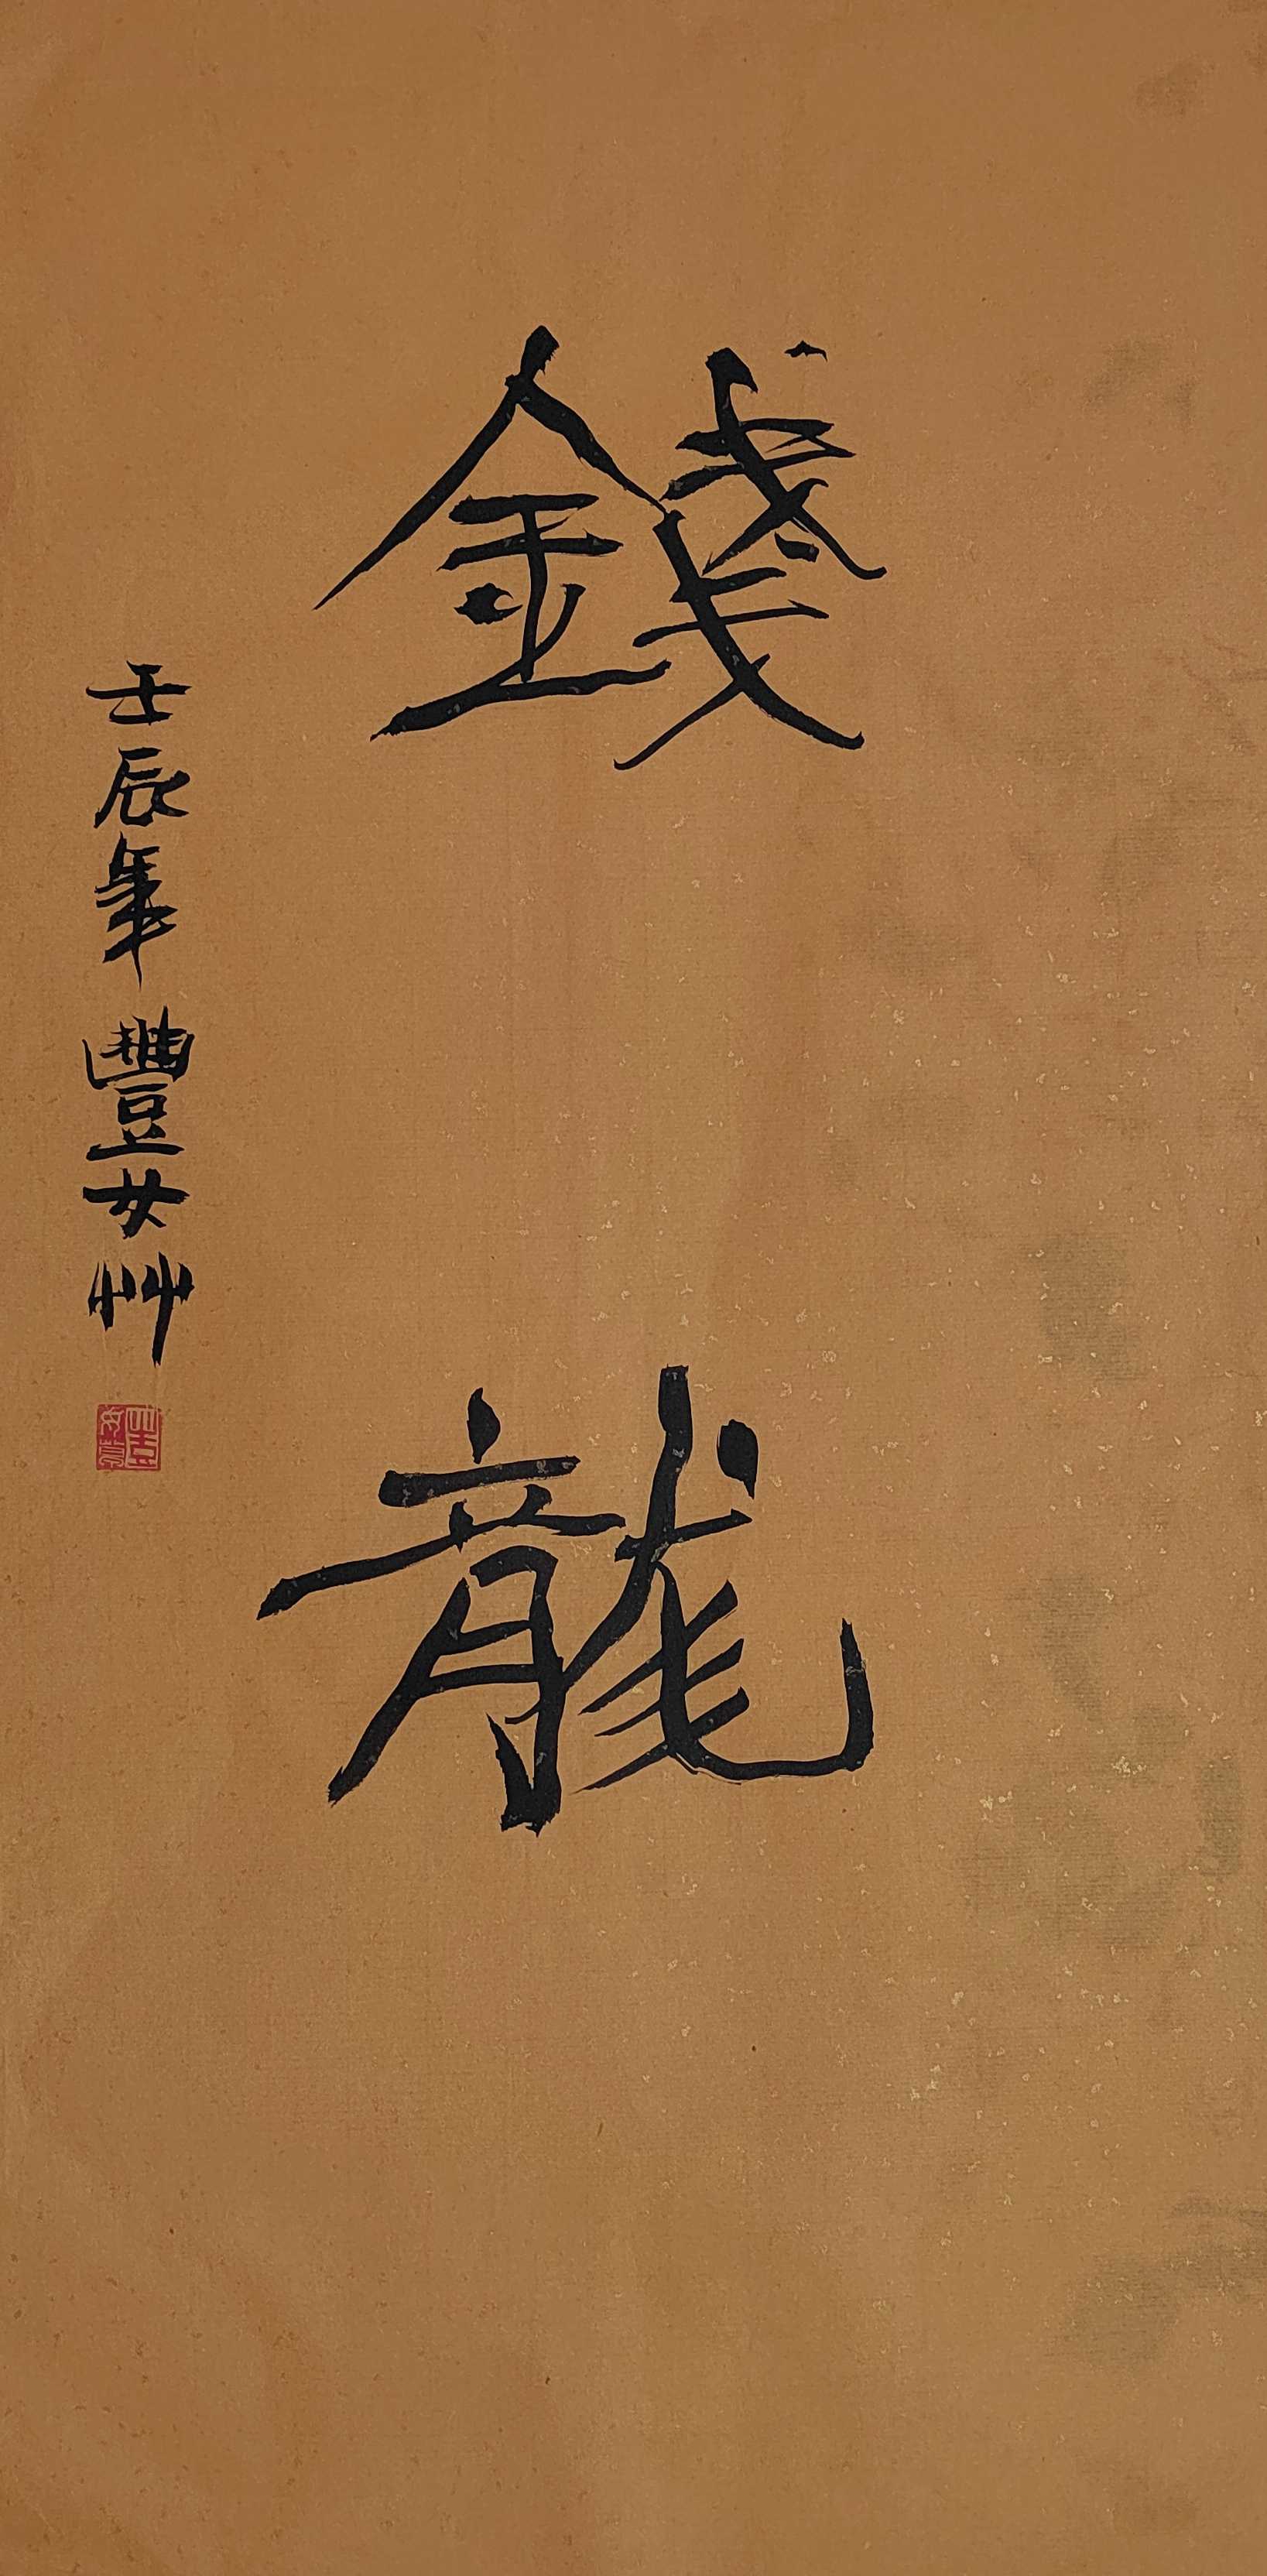 錢龍
壬辰年豐女艸